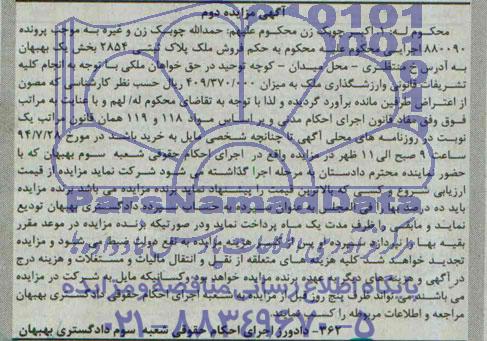 آگهی مزایده دوم
محکوم له: اراکسی چوپک زن محکوم علیهم: حمدالله چوپک زن و غیره به موجب پرونده
۸۸۰۰۹۰ اجرایی محکوم علیه محکوم به حکم فروش ملک پلاک ثبتی ۲۸۵۴ بخش یک بهبهان
به آدرس خ منتظری - محل میدان - کوچه توحید در حق خواهان ملکی با توجه به انجام کلیه
تشریفات قانونی وارزشگذاری ملک به میزان ۴۰۹/۳۷۰/۰۰۰ ریال حسب نظر کارشناسی که مصون
از اعتراض طرفین مانده برآورد گردیده و لذا با توجه به تقاضای محکوم له/لهم و با عنایت به مراتب
فوق وفق مفاد قانون اجرای احکام مدنی و بر اساس مواد ۱۱۸ و ۱۱۹ همان قانون مراتب یک
نوبت در روزنامه های محلی آگهی تا چنانچه شخصی مایل به خرید باشند در مورخ ۹۴/۷/۲۸
ساعت ۹ صبح الی ۱۱ ظهر در مزایده واقع در اجرای احکام حقوقی شعبه سوم بهبهان که با
حضور نماینده محترم دادستان به مرحله اجرا گذاشته می شود شرکت نماید مزایده از قیمت
ارزیابی شروع و کسی که بالاترین قیمت را پیشنهاد نماید برنده مزایده می باشد برنده مزایده
باید ده درصد بهاء فی المجلس به عنوان سپرده به حساب سپرده دادگستری بهبهان تودیع
نماید و مابقی را ظرف مدت یک ماه پرداخت نماید ودر صورتیکه برنده مزایده در موعد مقرر
بقیه بها را نپردازد سپرده او پس از کسر هزینه مزایده به نفع دولت ضبط می شود و مزایده
تجدید خواهد شد کلیه هزینه های متعلقه از نقل و انتقال مالیات و مستغلات و هزینه درج
در آگهی و هزینه های دیگر به عهده برنده مزایده خواهد بود وکسانیکه مایل به شرکت در مزایده
می باشند می تواند ظرف پنج روز قبل از مزایده به شعبه اجرای احکام حقوقی دادگستری بهبهان
مراجعه و اطلاعات مربوطه را کسب نمایند.
۳۶۲- دادورز اجرای احکام حقوقی شعبه سوم دادگستری بهبهان
ParsNamadData
پایگاه اطلاع رسانی مناقصه و مزایده
۰۲۱-۸۸۳۴۹۶۷۰-۵